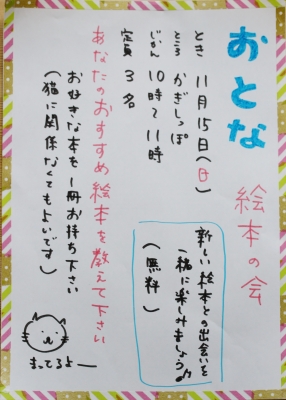 おとな
絵本の会
とき 11月15日(日)
ところ かぎしっぽ
じかん 10時〜11時
定員 3名
あなたのおすすめ絵本を教えて下さい
お好きな本を1冊お持ち下さい
(猫に関係なくてもよいです)
新しい絵本との出会いを
一緒に楽しみましょう♪
(無料)
まってるよー